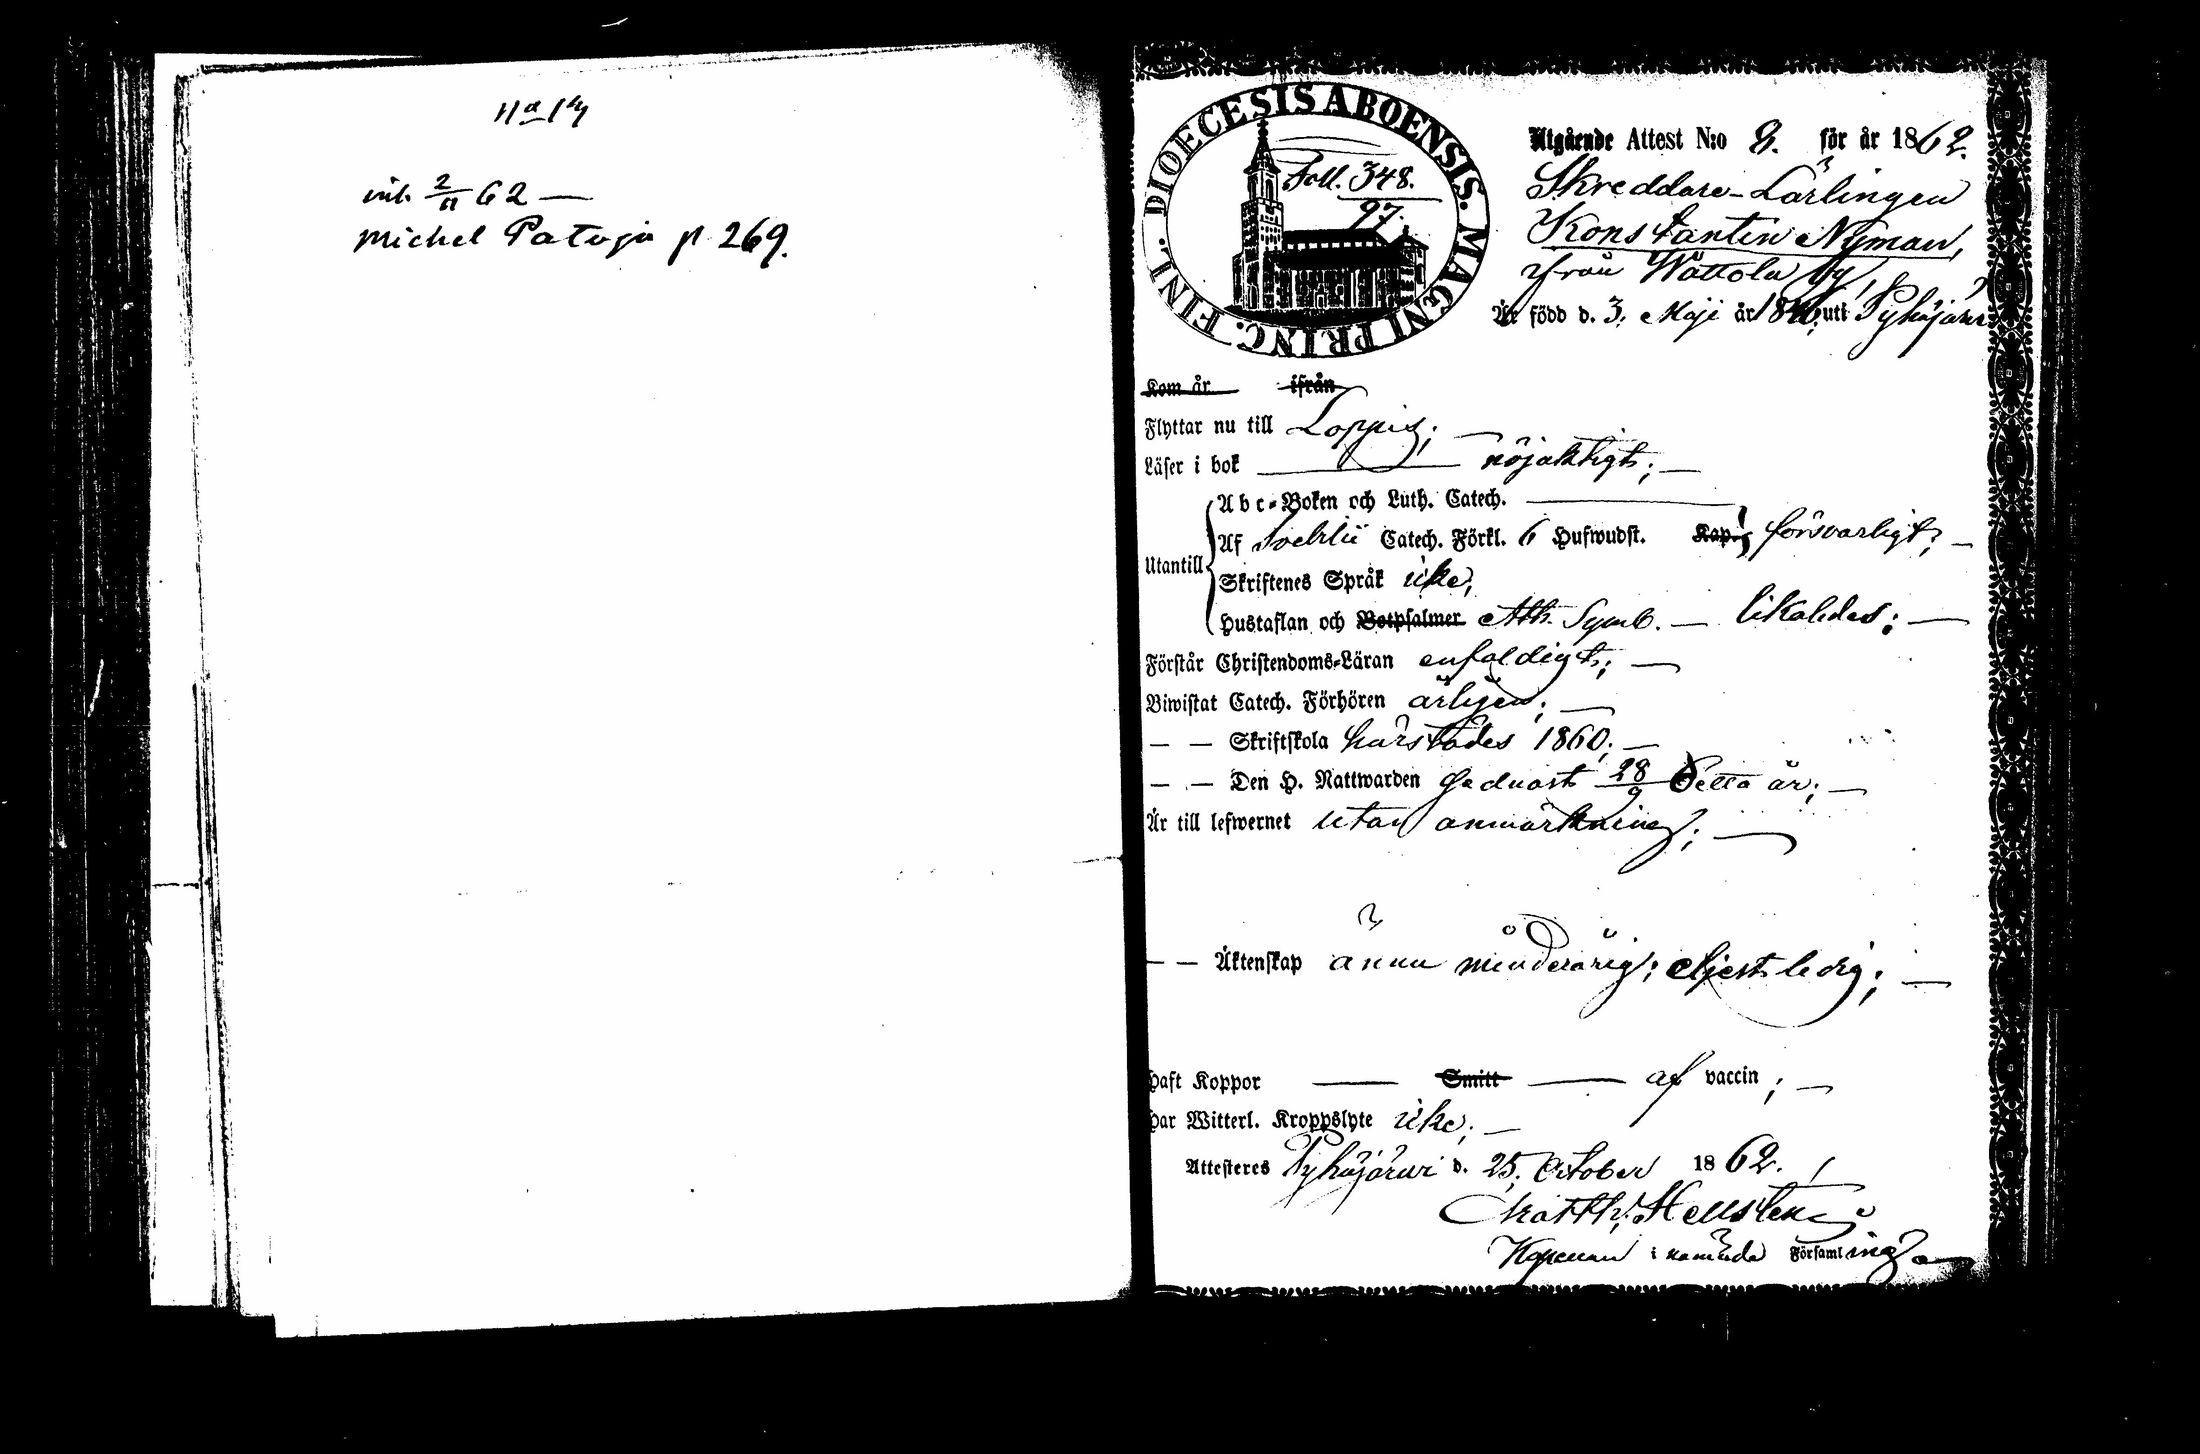 inl. 2/11 62 —
Michel Patoja p 269.
DIOECESIS ABOENSIS. MAGNI PRINC. FINL.
Foll. 348.
97.
Utgående Attest N:o 8. för år 1862.
Skreddare-Lärlingen
Konstantin Nyman,
från Wättola by,
Är född d. 3. Maji år uti Pyhäjärvi
Kom år ifrån
Flyttar nu till Loppis; —
Läser i bok — nöjaktigt; —
Abc-Boken och Luth. Catech. —
Utantill
Af Catech. Förkl. 6 Hufwudst. Kap. försvarligt; —
Skriftenes Språk icke;
Hustaflan och Botpsalmer Ath. Symb. — likaledes; —
Förstår Christendoms-Läran enfaldigt; —
Biwistat Catech. Förhören årligen; —
— — Skriftskola härstädes 1860; —
— — Den H. Nattwarden sednast 28/9 detta år; —
Är till lefwernet utan anmärkning; —
— — Äktenskap ännu minderårig; eljest ledig; —
Haft Koppor — Smitt — af vaccin; —
Har Witterl. Kroppslyte icke; —
Attesteres Pyhäjärvi d. 25. October 1862.
Matth. Hellsten
i nämnda Församling